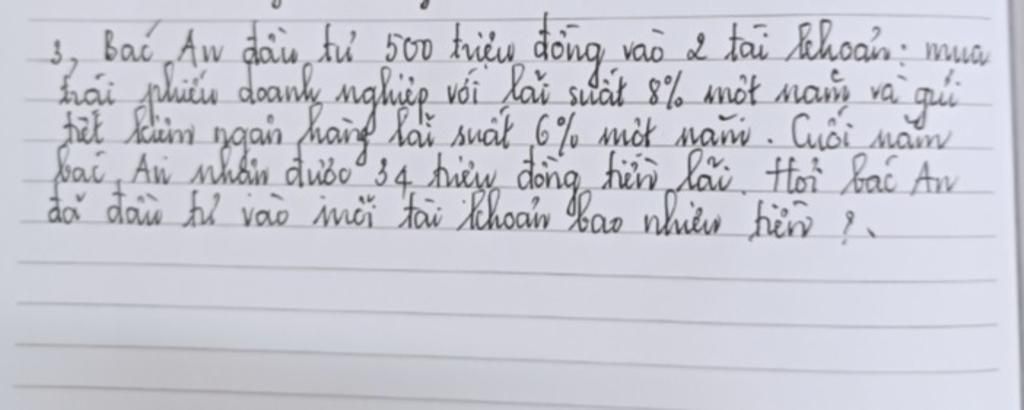 3, Bác An đầu tư 500 triệu đồng vào 2 tài khoản: mua
trái phiếu doanh nghiệp với lãi suất 8% một năm và gửi
tiết kiệm ngân hàng lãi suất 6% một năm. Cuối năm
bác An nhận được 34 triệu đồng tiền lãi. Hỏi bác An
đã đầu tư vào mỗi tài khoản bao nhiêu tiền ?